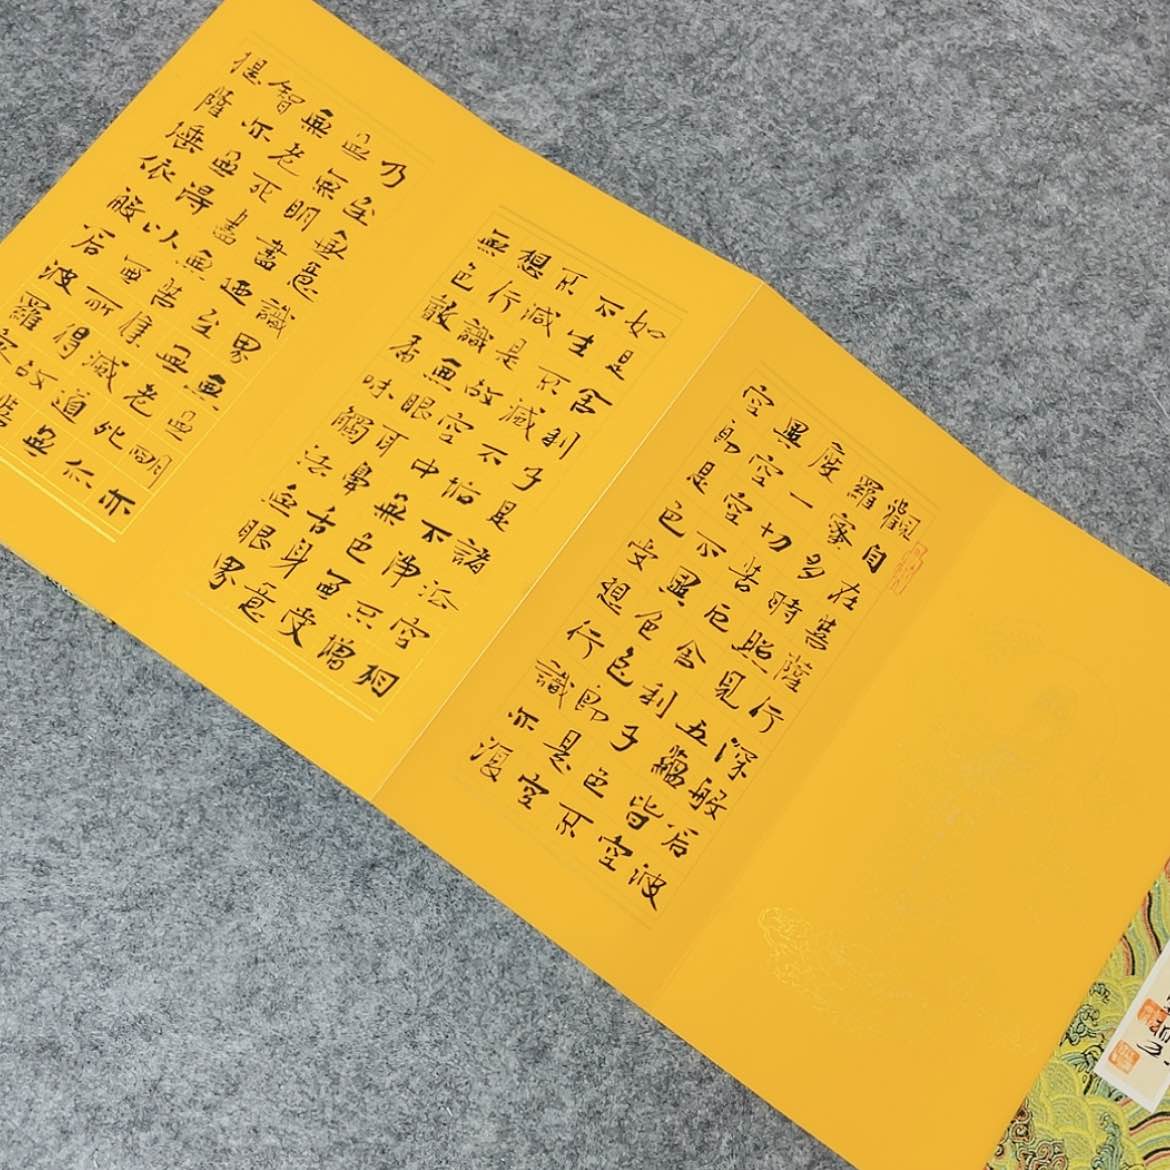 觀自在菩薩行深般若波
羅蜜多時照見五蘊皆空
度一切苦厄舍利子色不
異空空不異色色即是空
空即是色受想行識亦復
如是舍利子是諸法空相
不生不滅不垢不淨不增
不減是故空中無色無受
想行識無眼耳鼻舌身意
無色聲香味觸法無眼界
乃至無意識界無無明亦
無無明盡乃至無老死亦
無老死盡無苦集滅道無
智亦無得以無所得故菩
提薩埵依般若波羅蜜